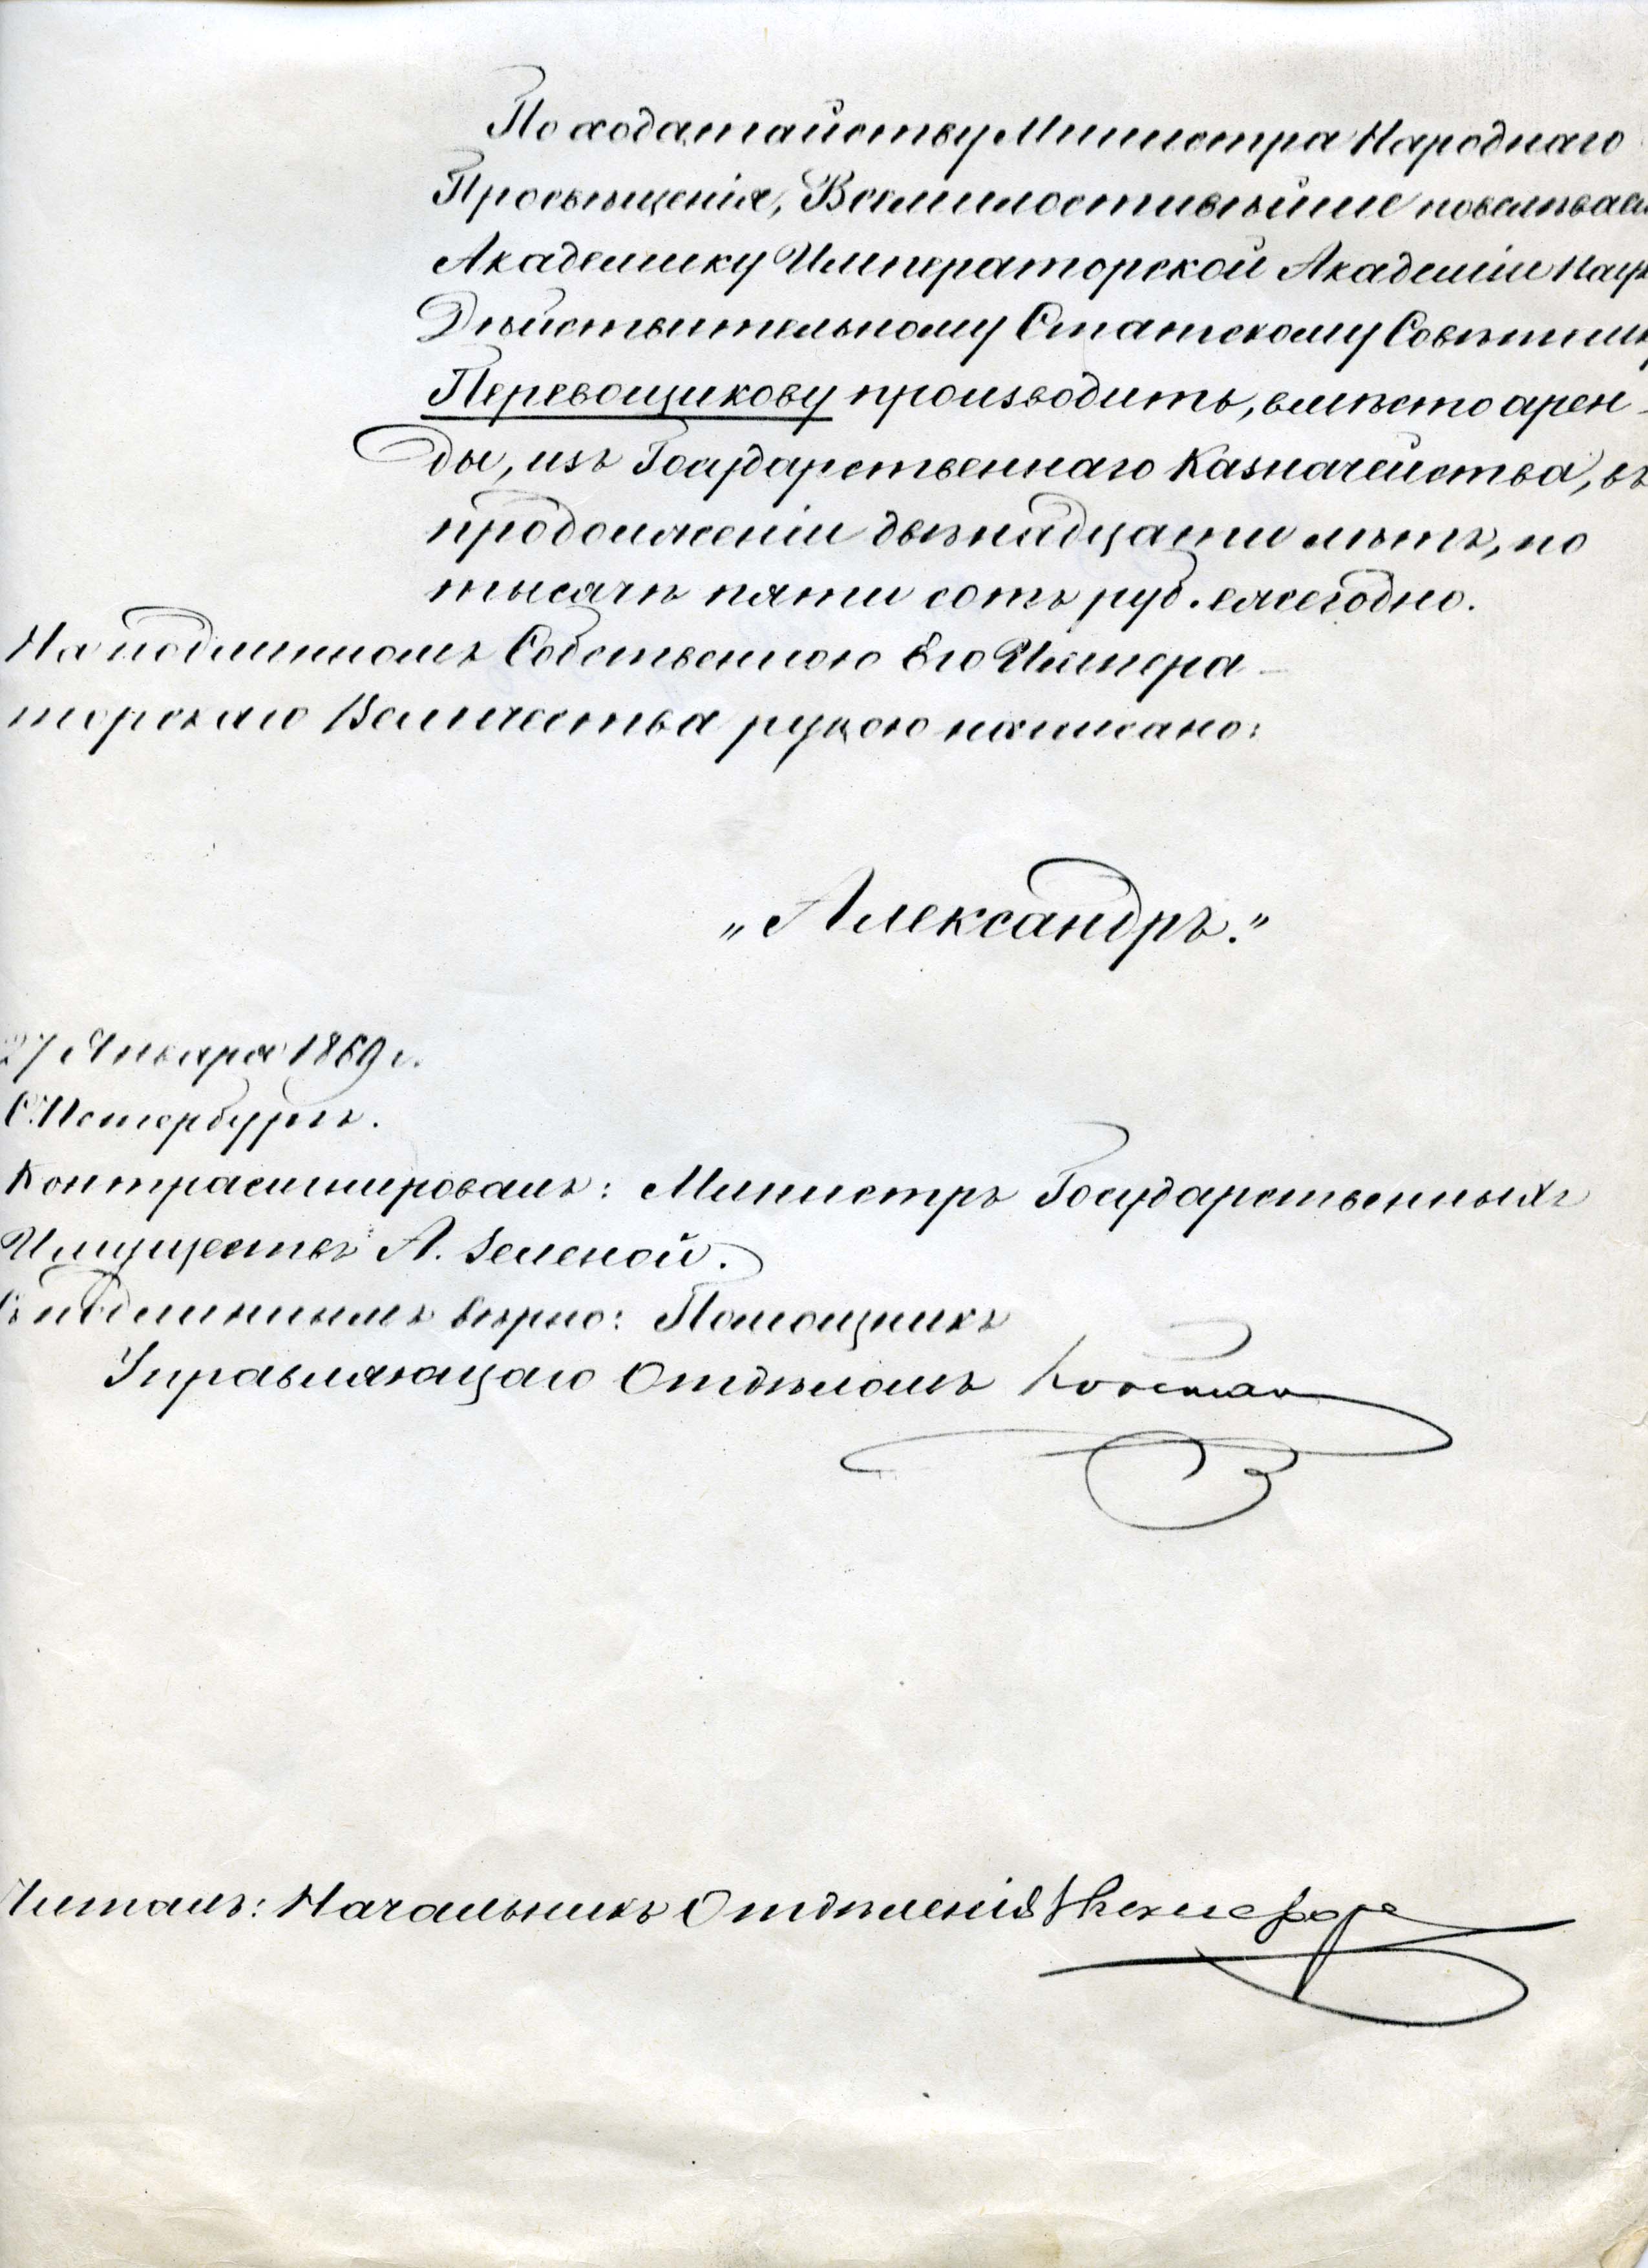 По ходатайству Министра Народнаго
Просвѣщенія, Всемилостивѣйше повелѣваем
Академику Императорской Академіи Наук
Дѣйствительному Статскому Совѣтник
Перевощикову производить, вмѣсто арен-
ды, изъ Государственнаго Казначейства, въ
продолженіи двѣнадцати лѣтъ, по
тысячѣ пяти сотъ руб. ежегодно.
На подлинномъ Собственною Его Импера-
торскаго Величества рукою написано:
„Александръ."
27 Января 1869 г.
С.Петербургъ.
Контрасигнировалъ: Министръ Государственныхъ
Имуществъ А. Зеленой.
Съ подлиннымъ вѣрно: Помощникъ
Управляющаго Отдѣломъ
Читалъ: Начальникъ Отдѣленія